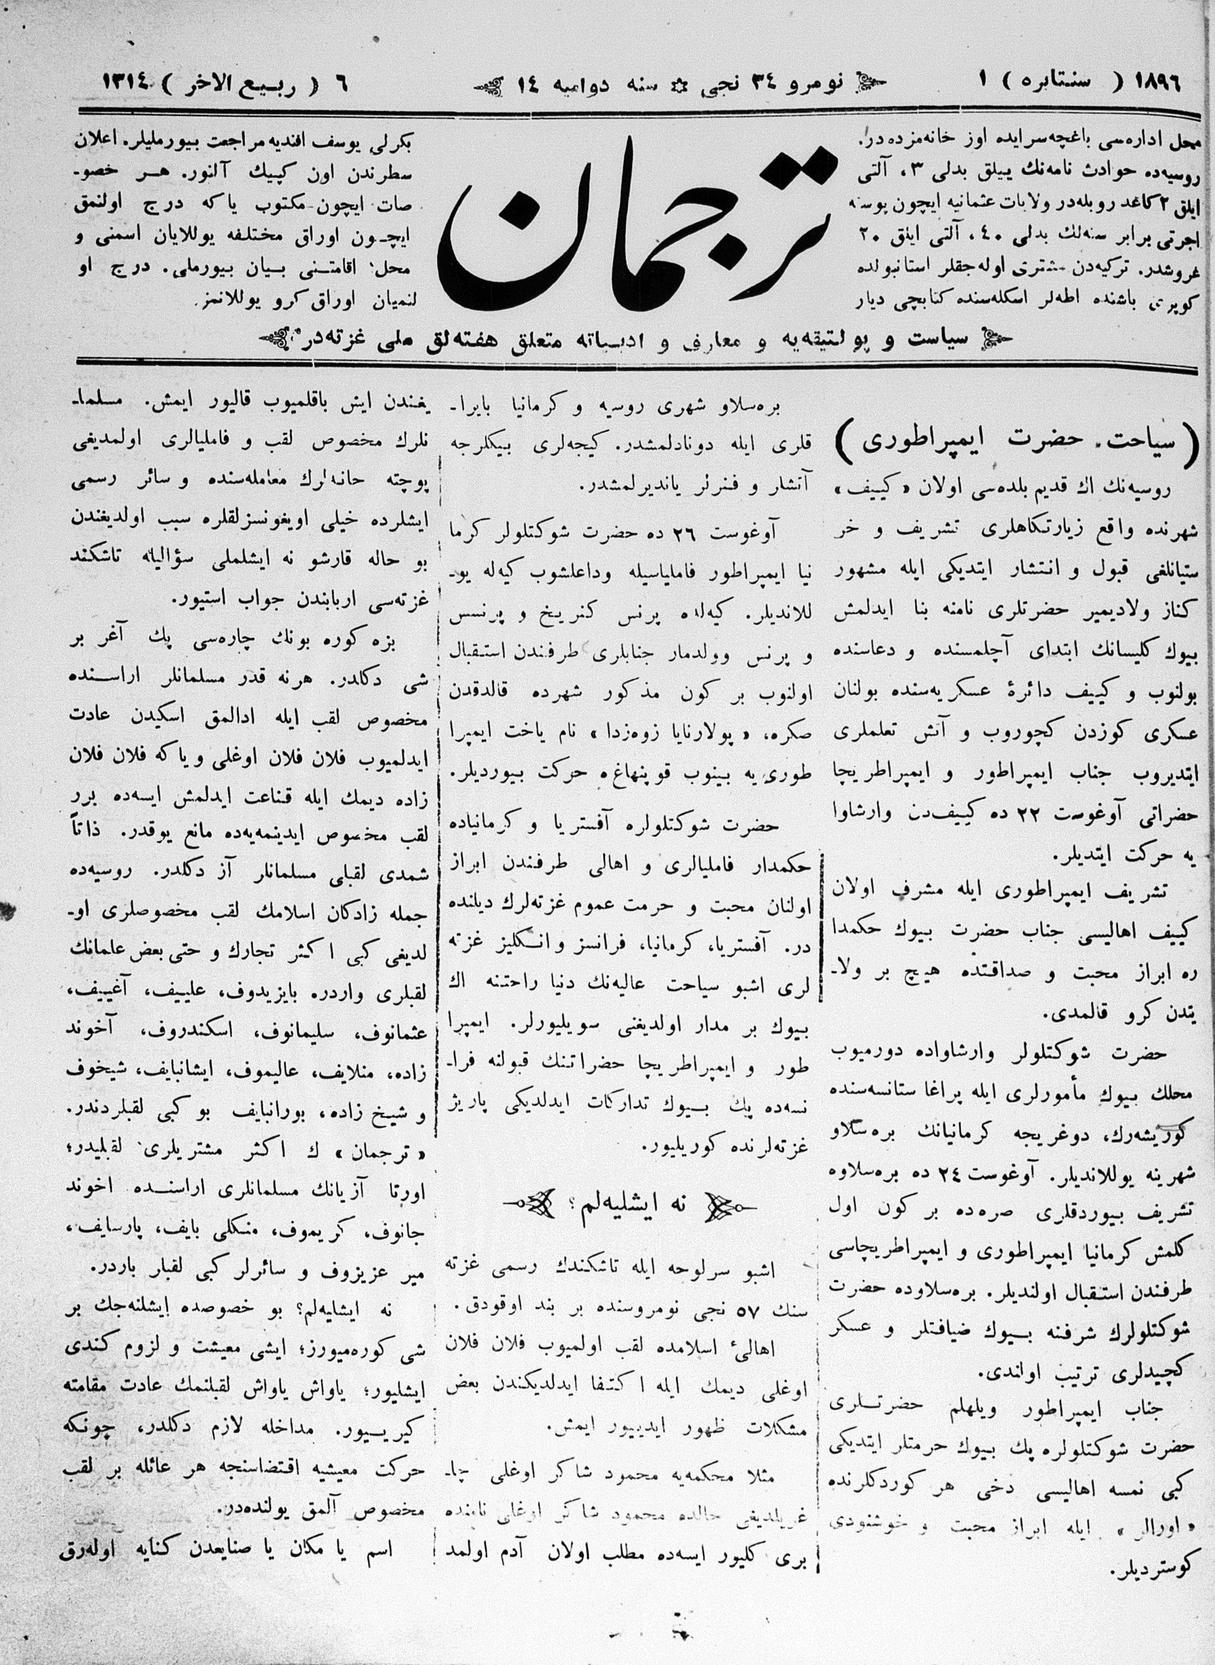 ١٨٩٦ ( سنتابره ) ١
نومرو ٣٤ نجى ✲ سنه دواميه ١٤
٦ ( ربيع الاخر ) ١٣١٤
محل اداره‌سى باغچه‌سرايده اوز خانه‌مزده در.
روسيه‌ده حوادث نامه‌نك ييلق بدلى ٣، آلتى
ايلق ٢ كاغد روبله‌در ولايات عثمانيه ايچون پوسته
اجرتى برابر سنه‌لك بدلى ٤٠، آلتى ايلق ٢٠
غروشدر. تركيه‌دن مشترى اوله جقلر استانبولده
كوپرى باشنده اطه‌لر اسكله‌سنده كتابچى ديار
ترجمان
بكرلى يوسف افنديه مراجعت بيورمليلر. اعلان
سطرندن اون كپيك آلنور. هـر خصو-
صات ايچون مكتوب ياكه درج اولنمق
ايچـون اوراق مختلفه يوللايان اسمنى و
محل اقامتـنى بـيان بيورملى. درج او
لنميان اوراق كرو يوللانمز.
سياست و پولتيقه‌يه و معارف و ادبـياته متعلق هفته‌لق ملى غزته‌در
( سياحت حضرت ايمپراطورى )
روسيه‌نك اك قديم بلده‌سى اولان «كييف»
شهرنده واقع زيارتكاهلرى تشريف و خر
ستيانلغى قبول و انتشار ايتديكى ايله مشهور
كناز ولاديمير حضرتلرى نامنه بنا ايدلمش
بيوك كليسانك ابتداى آچلمسنده و دعاسنده
بولنوب و كييف دائرۀ عسكريه‌سنده بولنان
عسكرى كوزدن كچوروب و آتش تعلملرى
ايتديروب جناب ايمپراطور و ايمپراطريچا
حضراتى آوغوست ٢٢ ده كييف‌دن وارشاوا
يه حركت ايتديلر.
تشريف ايمپراطورى ايله مشرف اولان
كييف اهاليسى جناب حضرت بـيوك حكمدا
ره ابراز محبت و صداقتده هيچ بر ولا-
يتدن كرو قالمدى.
حضرت شوكتلولر وارشاواده دورميوب
محلك بيوك مأمورلرى ايله پراغا ستانسه‌سنده
كوريشه‌رك، دوغريجه كرمانيانك بره‌سلاو
شهرينه يوللانديلر. آوغوست ٢٤ ده بره‌سلاوه
تشريف بـيوردقلرى صره‌ده بر كون اول
كلمش كرمانيا ايمپراطورى و ايمپراطريچاسى
طرفندن استقبال اولنديلر. بره‌سلاوده حضرت
شوكتلولرك شرفنه بـيوك ضيافتلر و عسكر
كچيدلرى ترتيب اولندى.
جناب ايمپراطور ويلهلم حضرتـلرى
حضرت شوكتلولره پك بـيوك حرمتلر ايتديكى
كبى نمسه اهاليسى دخى هر كوردكلرنده
«اورال» ايله ابراز محبت و خوشنودى
كوسترديلر.
بره‌سلاو شهرى روسيه و كرمانيا بايرا-
قلرى ايله دونادلمشدر. كيجه‌لرى بيكلرجه
آتشلر و فنرلر يانديرلمشدر.
آوغوست ٢٦ ده حضرت شوكتلولر كرما
نيا ايمپراطور فاملياسيله وداعلشوب كيه‌له يو-
للانديلر. كيه‌لده پرنس كنريخ و پرنسس
و پرنس وولدمار جنابلرى طرفندن استـقبال
اولنوب بر كون مذكور شهرده قالدقدن
صكره، «پولارنايا زوه‌زدا» نام ياخت ايمپرا
طورى‌يه بـينوب قوپنهاغه حركت بـيورديلر.
حضرت شوكتلولره آفستريا و كرمانياده
حكمدار فامليالرى و اهالى طرفندن ابراز
اولنان محبت و حرمت عموم غزته‌لرك ديلنده
در. آفستريا، كرمانيا، فرانسز و انـكليز غزته
لرى اشبو سياحت عاليه‌نك دنيا راحتنه اك
بـيوك بر مدار اولديغنى سويليورلر. ايمپرا
طور و ايمپراطريچا حضراتنك قبولنه فرا-
نسه‌ده پك بـيوك تداركات ايدلديكى پاريژ
غزته‌لرنده كوريليور.
نه ايشليه‌لم؟
اشبو سرلوحه ايله تاشكندك رسمى غزته
سنك ٥٧ نجى نومروسنده بر بند اوقودق.
اهالئ اسلامده لقب اولميوب فلان فلان
اوغلى ديمك ايله اكتفا ايدلديكندن بعض
مشكلات ظهور ايدييور ايمش.
مثلا محكمه‌يه محمود شاكر اوغلى چا-
غريلديغى حالده محمود شاكر اوغلى نامنده
برى كليور ايسه‌ده مطلب اولان آدم اولمد
يغندن ايش باقلميوب قاليور ايمش. مسلما-
نلرك مخصوص لقب و فامليالرى اولمديغى
پوچته خانه‌لرك معامله‌سنده و سائر رسمى
ايشلرده خيلى اويغونسزلقلره سبب اولديغندن
بو حاله قارشو نه ايشلملى سؤاليله تاشكند
غزته‌سى اربابندن جواب استيور.
بزه كوره بونك چاره‌سى پك آغر بر
شى دكلدر. هرنه قدر مسلمانلر اراسـنده
مخصوص لقب ايله ادالمق اسكيدن عادت
ايدلميوب فلان فلان اوغلى و ياكه فلان فلان
زاده ديمك ايله قناعت ايدلمش ايسه‌ده برر
لقب مخصوص ايدنمه‌يه‌ده مانع يوقدر. ذاتاً
شمدى لقبلى مسلمانلر آز دكلدر. روسيه‌ده
جمله زادكان اسلامك لقب مخصوصلرى او-
لديغى كبى اكثر تجارك و حتى بعض علمانك
لقبلرى واردر. بايزيدوف، علييف، آغييف،
عثمانوف، سليمانوف، اسكندروف، آخوند
زاده، منلايف، عاليموف، ايشانبايف، شيخوف
و شيخ زاده، بورانبايف بو كبى لقبلردندر.
«ترجمان» ك اكثر مشتريلرى لقبليدر؛
اورتا آزيانك مسلمانلرى اراسنـده اخوند
جانوف، كريموف، منكلى بايف، پارسايف،
مير عزيزوف و سائرلر كبى لقبلر باردر.
نه ايشليه‌لم؟ بو خصوصده ايشلنه‌جك بر
شى كوره‌ميورز؛ ايشى معيشت و لزوم كندى
ايشليور؛ ياواش ياواش لقبلنمك عادت مقامته
كيريـيور. مداخله لازم دكلدر، چونكه
حركت معيشيه اقتضاسنجه هر عائله بر لقب
مخصوص آلمق يولنده‌در.
اسم يا مكان يا صنايعدن كنايه اوله‌رق